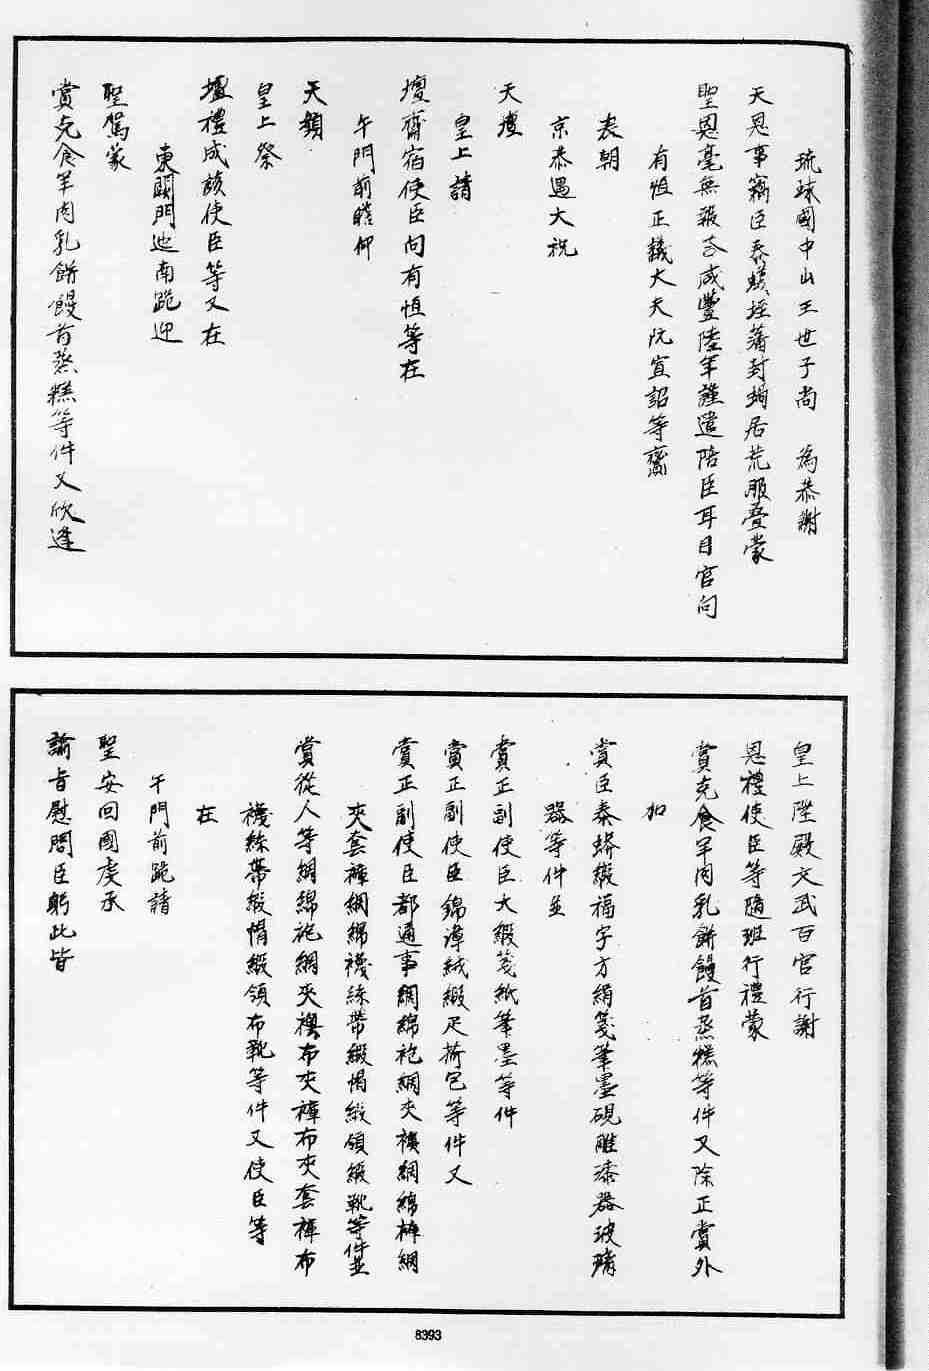 琉球國中山王世子尚　為恭謝
天恩事竊臣泰蟻垤藩封蝸居荒服疊蒙
聖恩毫無報答咸豐陸年謹遣陪臣耳目官向
有恒正議大夫阮宣詔等齎
表朝
京恭遇大祝
天壇
皇上請
壇齋宿使臣向有恒等在
午門前瞻仰
天顏
皇上祭
壇禮成該使臣等又在
東闕門迆南跪迎
聖駕蒙
賞克食羊肉乳餅饅首蒸糕等件又欣逢
皇上陞殿文武百官行謝
恩禮使臣等隨班行禮蒙
賞克食羊肉乳餅饅首蒸糕等件又除正賞外
加
賞臣泰蟒緞福字方絹箋筆墨硯雕漆器玻璃
器等件並
賞正副使臣大緞箋紙筆墨等件
賞正副使臣錦漳絨緞疋荷包等件又
賞正副使臣都通事綢綿袍綢夾襖綢綿褲綢
夾套褲綢綿襪絲帶緞帽緞領緞靴等件並
賞從人等綢綿袍綢夾襖布夾褲布夾套褲布
襪絲帶緞帽緞領布靴等件又使臣等
在
午門前跪請
聖安回國虔承
諭旨慰問臣躬此皆
8393